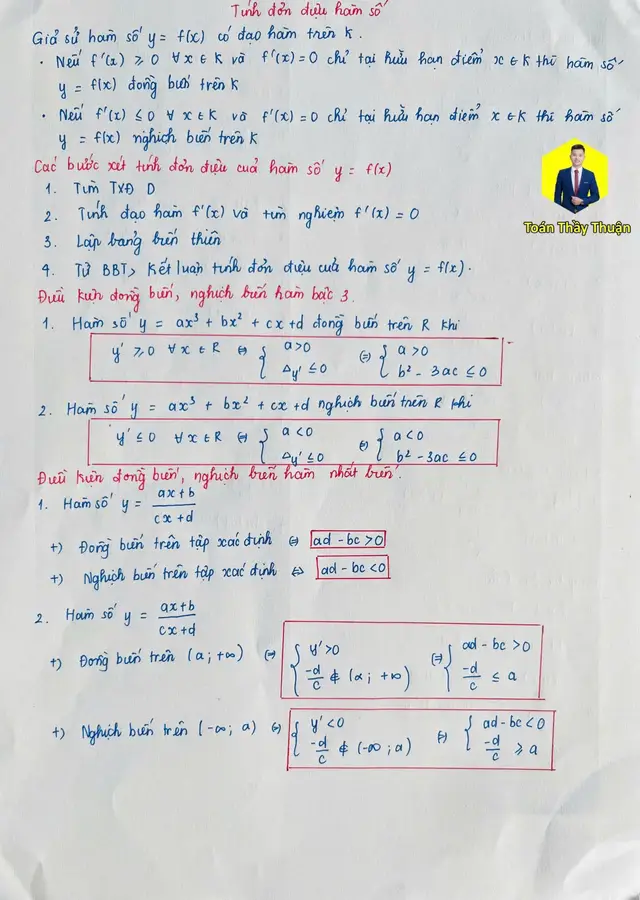 Tính đơn điệu hàm số
Giả sử hàm số y = f(x) có đạo hàm trên K.
• Nếu f'(x) ≥ 0 ∀ x ∈ K và f'(x) = 0 chỉ tại hữu hạn điểm x ∈ K thì hàm số
y = f(x) đồng biến trên K
• Nếu f'(x) ≤ 0 ∀ x ∈ K và f'(x) = 0 chỉ tại hữu hạn điểm x ∈ K thì hàm số
y = f(x) nghịch biến trên K
Các bước xét tính đơn điệu của hàm số y = f(x)
1. Tìm TXĐ D
2. Tính đạo hàm f'(x) và tìm nghiệm f'(x) = 0
3. Lập bảng biến thiên
4. Từ BBT > Kết luận tính đơn điệu của hàm số y = f(x).
Toán Thầy Thuận
Điều kiện đồng biến, nghịch biến hàm bậc 3.
1. Hàm số y = ax³ + bx² + cx + d đồng biến trên R khi
y' ≥ 0 ∀ x ∈ R ⇔ { a > 0 ; Δy' ≤ 0 ⇔ { a > 0 ; b² - 3ac ≤ 0
2. Hàm số y = ax³ + bx² + cx + d nghịch biến trên R khi
y' ≤ 0 ∀ x ∈ R ⇔ { a < 0 ; Δy' ≤ 0 ⇔ { a < 0 ; b² - 3ac ≤ 0
Điều kiện đồng biến, nghịch biến hàm nhất biến.
1. Hàm số y = (ax+b)/(cx+d)
+) Đồng biến trên tập xác định ⇔ ad - bc > 0
+) Nghịch biến trên tập xác định ⇔ ad - bc < 0
2. Hàm số y = (ax+b)/(cx+d)
+) Đồng biến trên (a; +∞) ⇔ { y' > 0 ; -d/c ∉ (a; +∞) ⇔ { ad - bc > 0 ; -d/c ≤ a
+) Nghịch biến trên (-∞; a) ⇔ { y' < 0 ; -d/c ∉ (-∞; a) ⇔ { ad - bc < 0 ; -d/c ≥ a